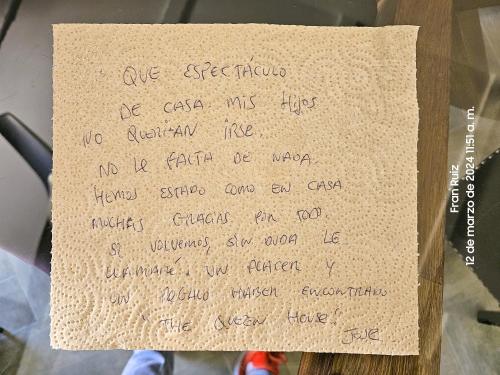 QUE ESPECTÁCULO
DE CASA. MIS HIJOS
NO QUERIAN IRSE.
NO LE FALTA DE NADA.
HEMOS ESTADO COMO EN CASA
MUCHAS GRACIAS POR TODO.
SI VOLVEMOS, SIN DUDA LE
LLAMARÉ. UN PLACER Y
UN REGALO HABER ENCONTRADO
"THE QUEEN HOUSE"
Fran Ruiz
12 de marzo de 2024 11:51 a. m.